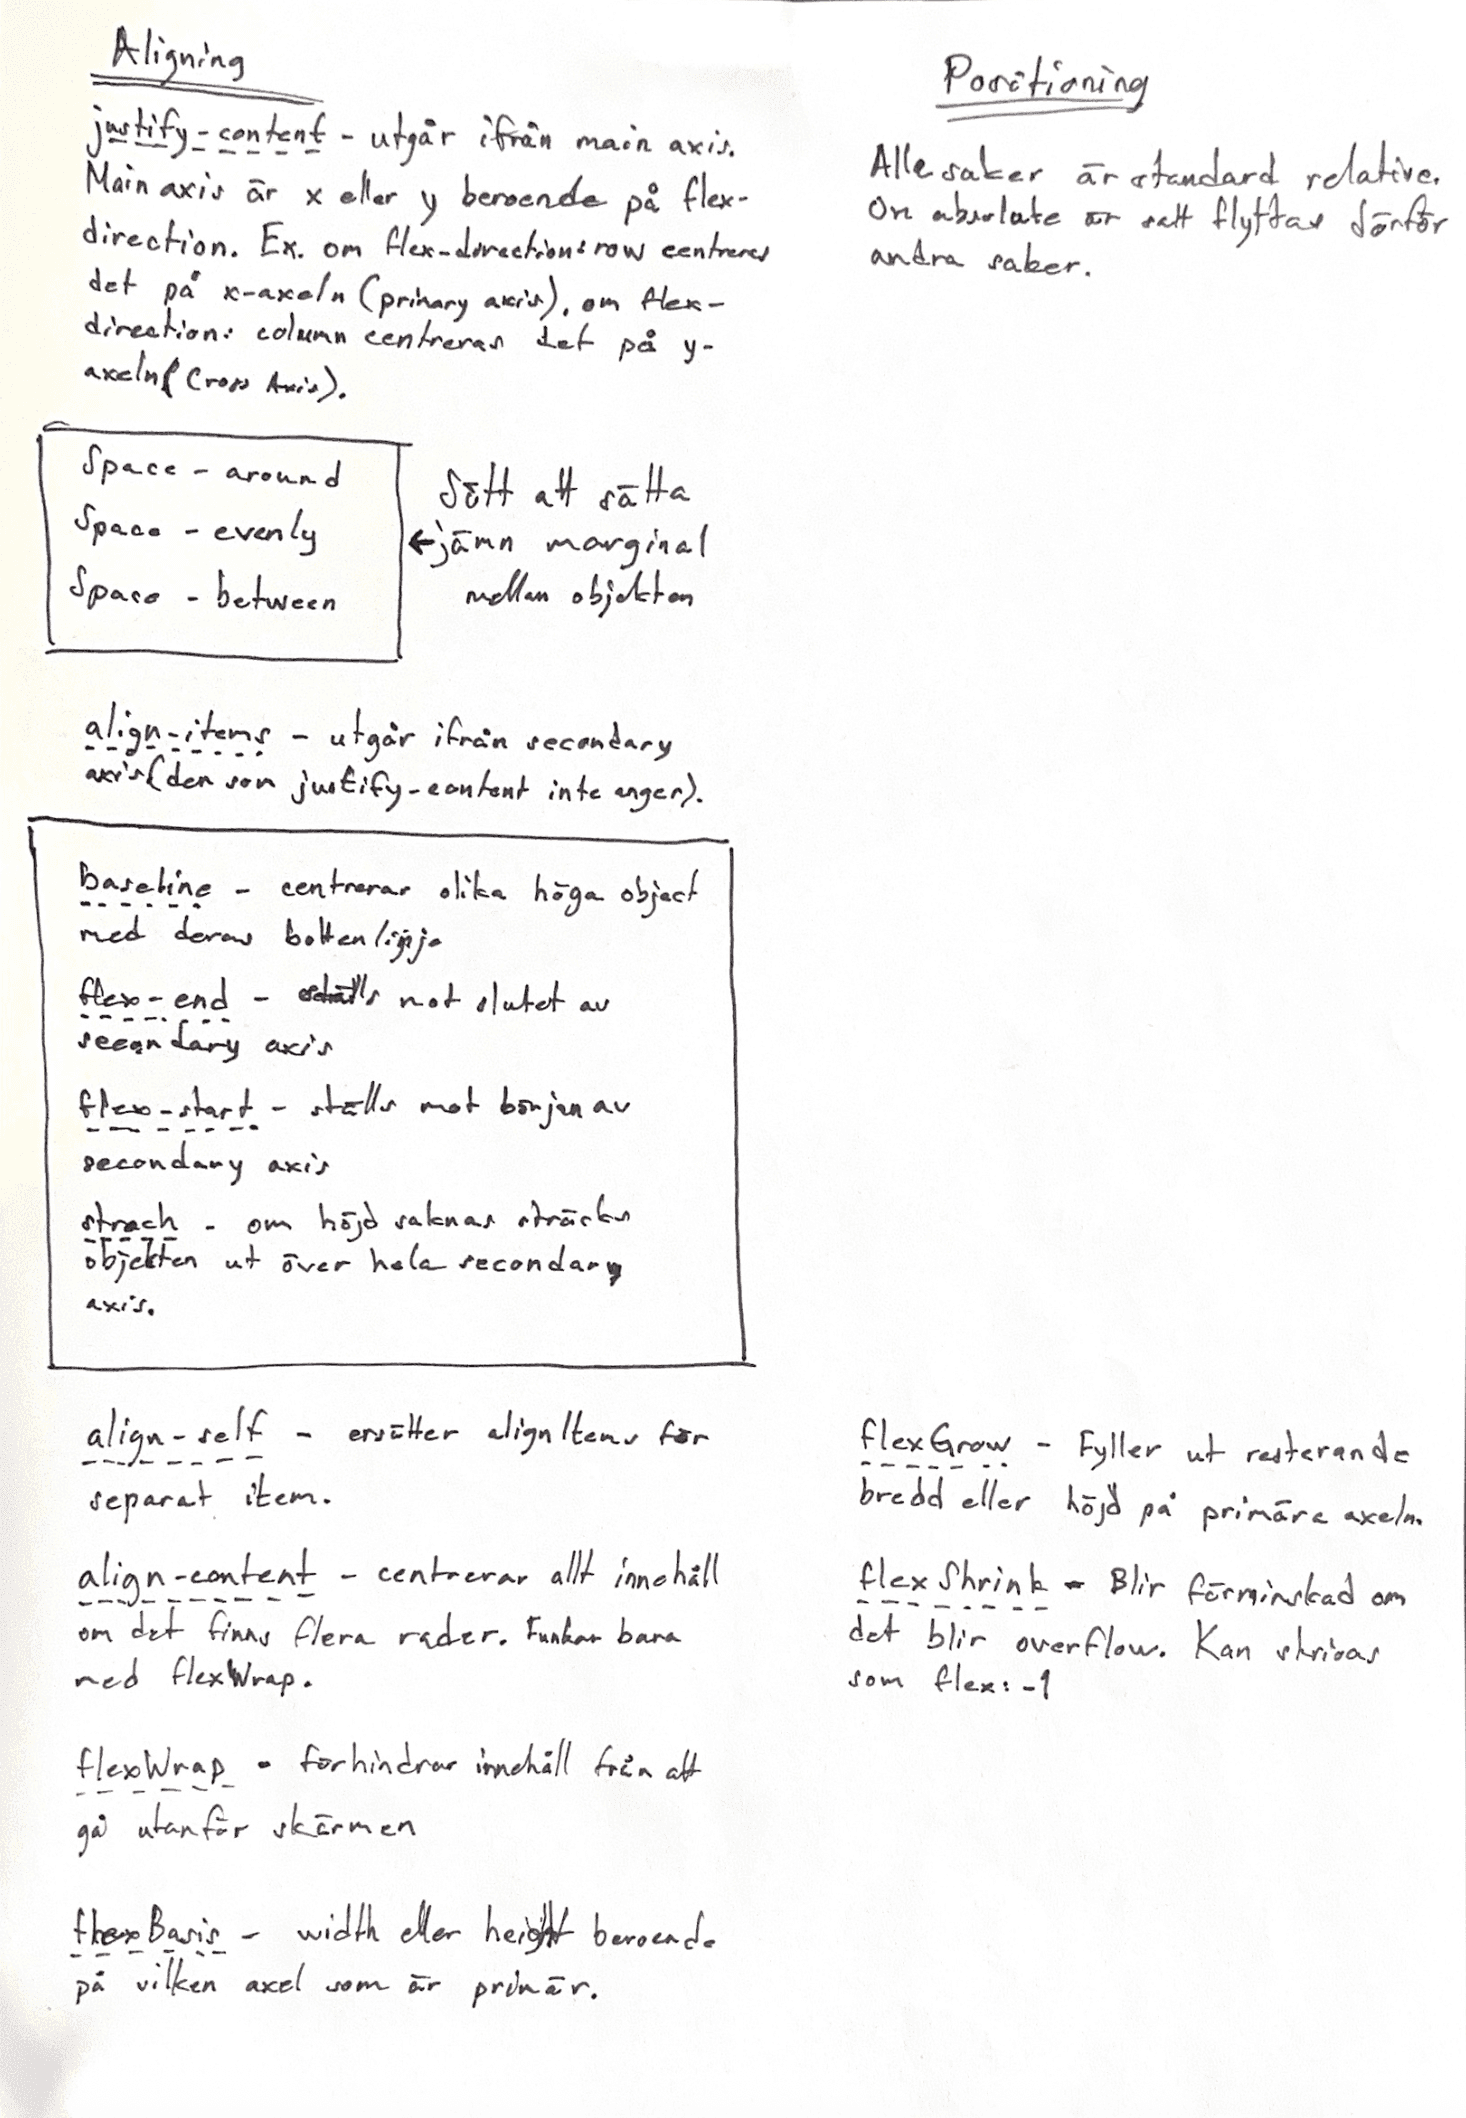 Aligning
justify-content - utgår ifrån main axis.
Main axis är x eller y beroende på flex-
direction. Ex. om flex-direction: row centreras
det på x-axeln (primary axis), om flex-
direction: column centreras det på y-
axeln (Cross Axis).
Space - around
Space - evenly
Space - between
Sätt att sätta
← jämn marginal
mellan objekten
align-items - utgår ifrån secondary
axis (den som justify-content inte anger).
baseline - centrerar olika höga object
med deras bottenlinje
flex-end - ställs mot slutet av
secondary axis
flex-start - ställs mot början av
secondary axis
strach - om höjd saknas sträcks
objekten ut över hela secondary
axis.
align-self - ersätter alignItems för
separat item.
align-content - centrerar allt innehåll
om det finns flera rader. Funkar bara
med flexWrap.
flexWrap - förhindrar innehåll från att
gå utanför skärmen
flexBasis - width eller height beroende
på vilken axel som är primär.
Positioning
Alle saker är standard relative.
Om absolute är satt flyttas därför
andra saker.
flexGrow - Fyller ut resterande
bredd eller höjd på primära axeln.
flexShrink - Blir förminskad om
det blir overflow. Kan skrivas
som flex: -1